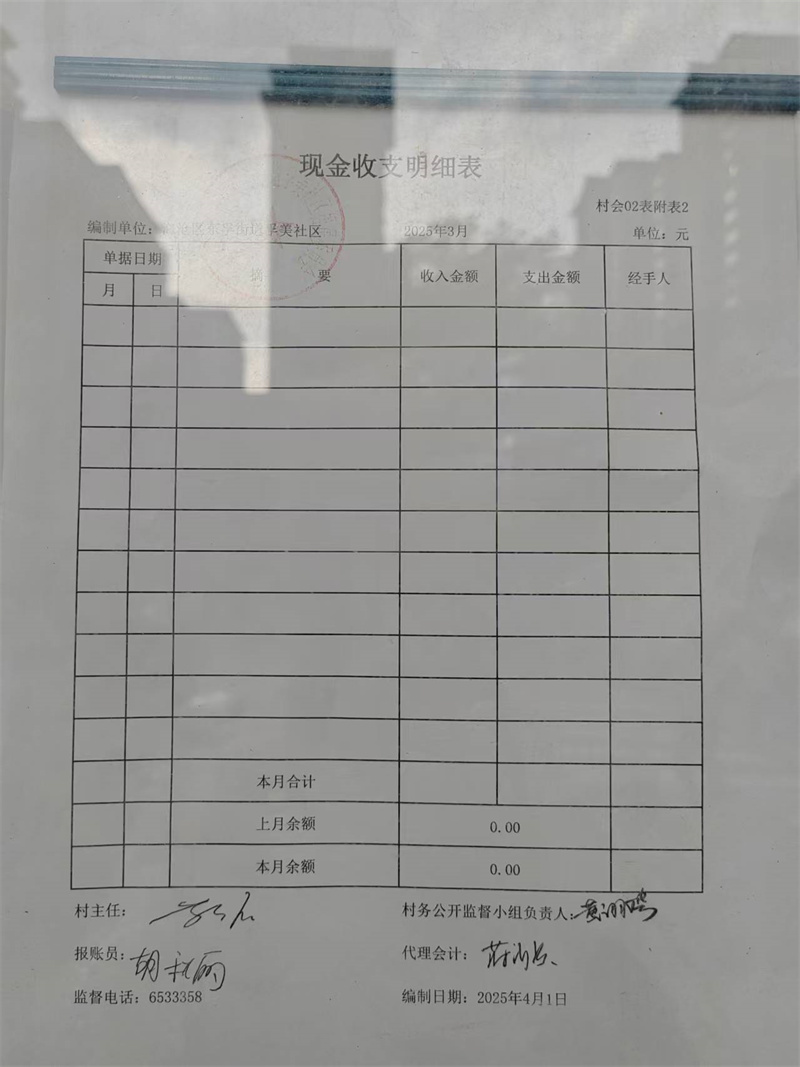 现金收支明细表
村会02表附表2
编制单位： 孚美社区 2025年3月 单位：元
单据日期 摘 要 收入金额 支出金额 经手人
月 日
本月合计
上月余额 0.00
本月余额 0.00
村主任： 村务公开监督小组负责人：
报账员：胡秋丽 代理会计：
监督电话：6533358 编制日期：2025年4月1日